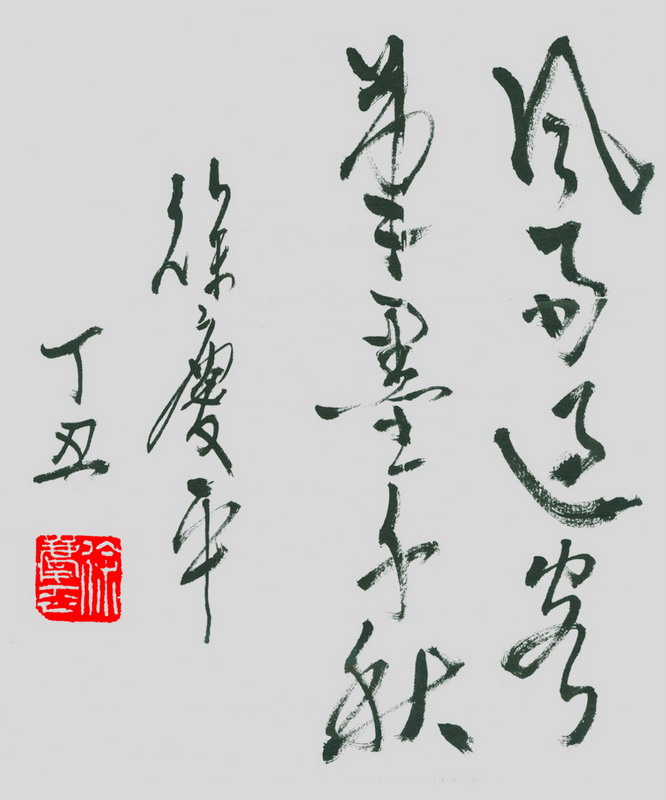 風雨過客
筆墨千秋
徐慶平
丁丑
徐慶平